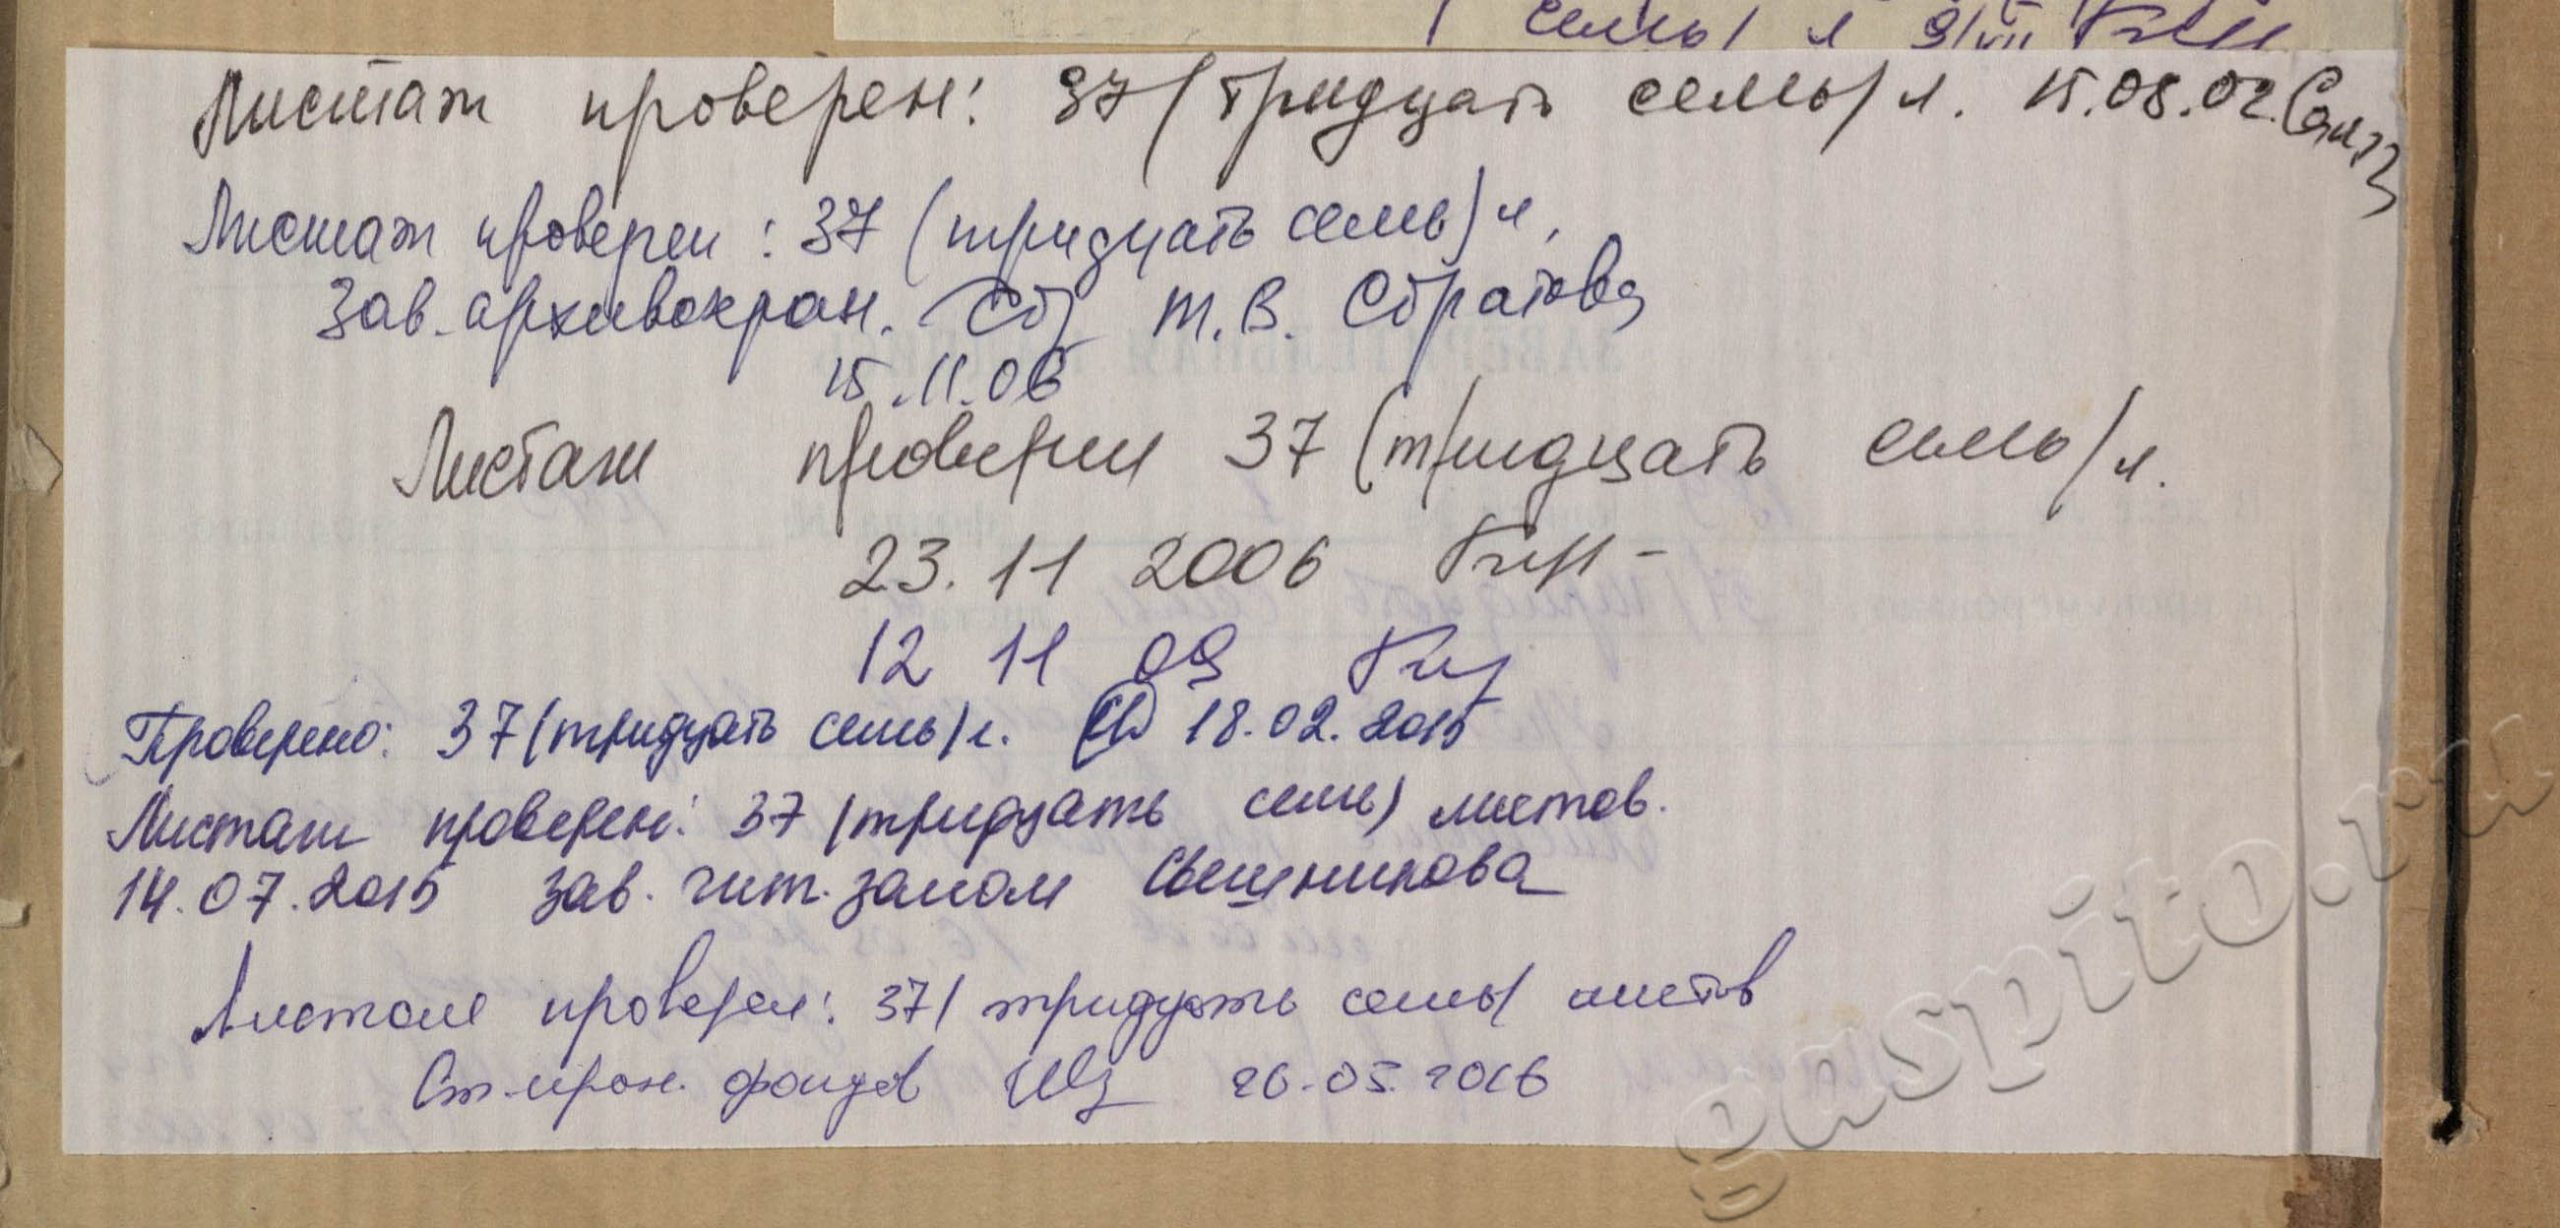 семь/ л 9/VII
Листаж проверен: 37 /тридцать семь/ л. 15.08.02.
Листаж проверен: 37 (тридцать семь) л.
Зав. архивохран. Т.В. Сбратова
15.11.06
Листаж проверен 37 (тридцать семь/ л.
23. 11 2006
12 11 09
Проверено: 37 (тридцать семь) л. 18.02.2015
Листаж проверен: 37 (тридцать семь) листов.
14.07.2015 зав. чит. залом Свешникова
Листаж проверен: 37/ тридцать семь/ листов
Ст. хран. фондов 26.05.2016
gaspito.ru